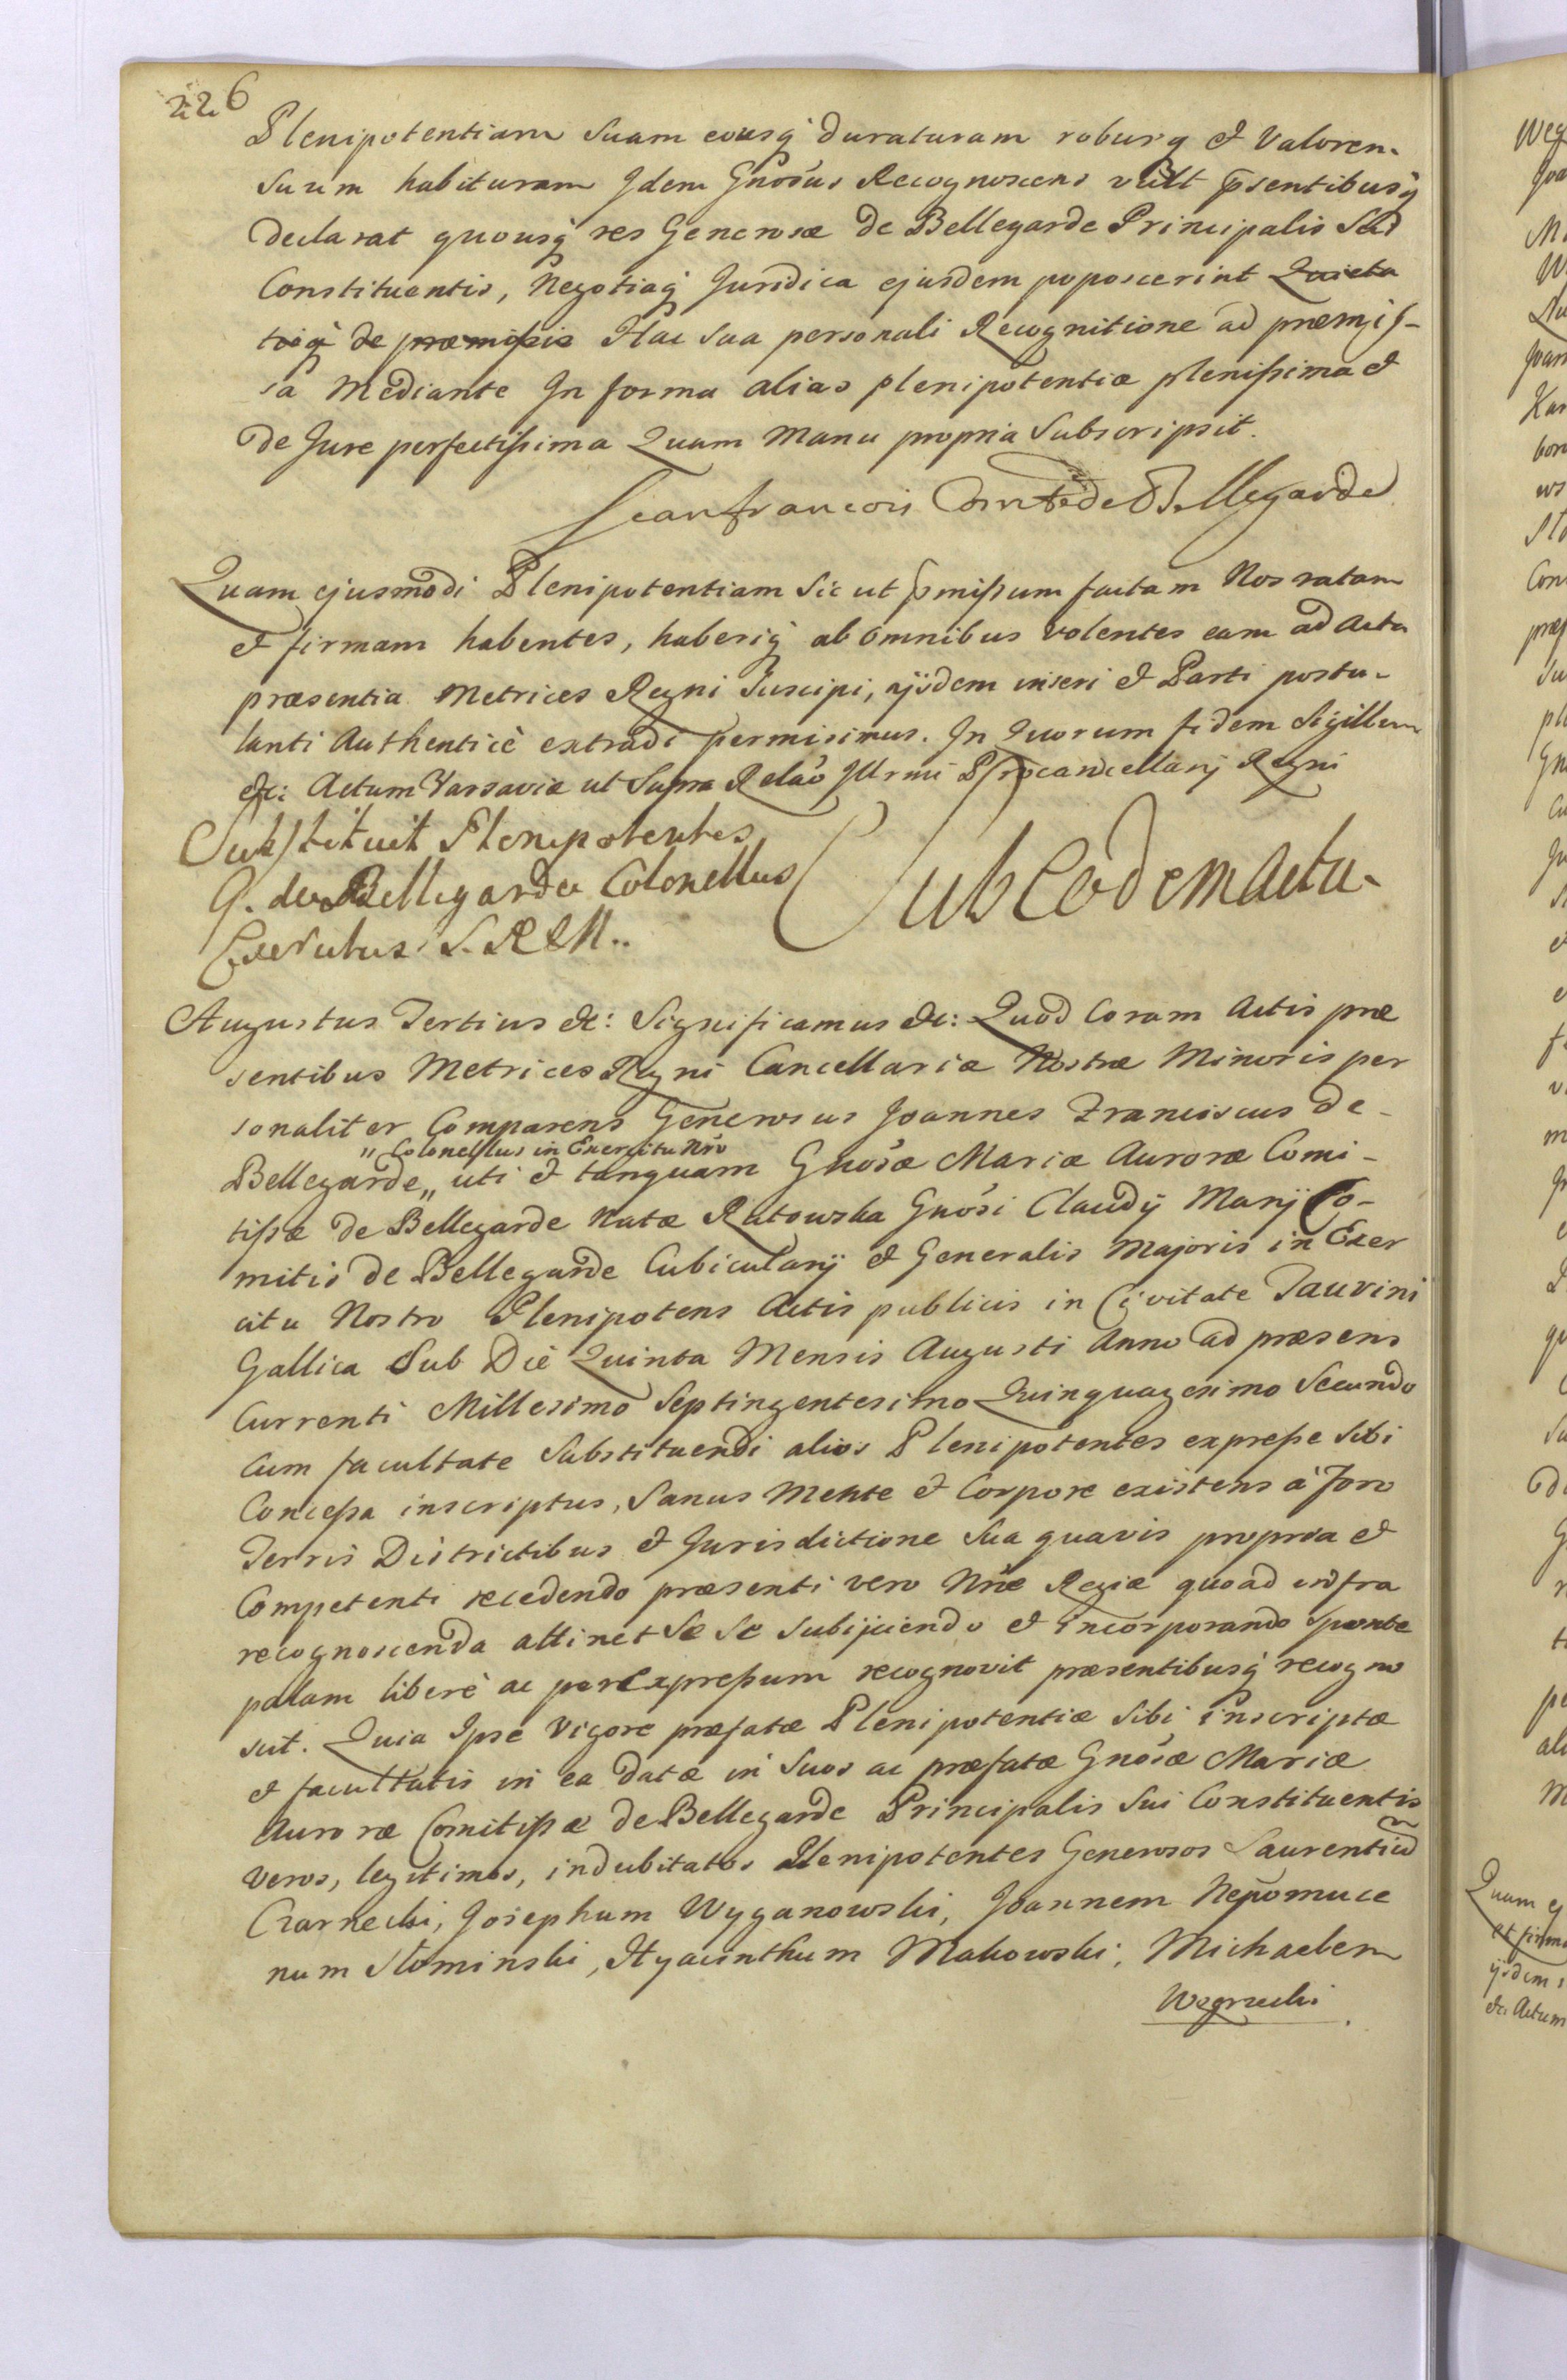 226
Plenipotentiam Suam eousq̃ duraturam roburq̃ et Valorem
Suum habituram Idem Gnosus Recognoscens vult p̃sentibusq̃
declarat quousq̃ res Generosæ de Bellegarde Principalis Sui
Constituentis, Negotiaq̃ Juridica ejusdem poposcerint Quieta
tisq̃ de præmissis Hac sua personali Recognitione ad præmis-
sa Mediante In forma alias plenipotentiæ plenissima et
de Jure perfectissima Quam Manu propria Subscripsit.
Jean francois Comte de Bellegarde
Quam ejusmodi Plenipotentiam Sic ut p̃missum factam Nos ratam
et firmam habentes, haberiq̃ ab omnibus volentes eam ad Acta
præsentia Metrices Regni Suscipi, ijsdem inseri et Parti postu-
lanti Authenticè extradi permisimus. In Quorum fidem Sigillum
etc: Actum Varsaviæ ut Supra Relao Illrmi Procancellarij Regni
Substituit Plenipotentes
G. de Bellegarde Colonellus
Exercitus S. R. M.
Sub Eodem Actu.
Augustus Tertius etc: Significamus etc: Quod Coram Actis præ
sentibus Metrices Regni Cancellariæ Nostræ Minoris per
sonaliter Comparens Generosus Joannes Franciscus de
" Colonellus in Exercitu Nro
Bellegarde „ uti et tanquam Gnosæ Mariæ Auroræ Comi-
tissæ de Bellegarde Natæ Rutowska Gnosi Claudij Marij Co-
mitis de Bellegarde Cubicularij et Generalis Majoris in Exer
citu Nostro Plenipotens Actis publicis in Civitate Taurini
Gallica Sub Die Quinta Mensis Augusti Anno ad præsens
Currenti Millesimo Septingentesimo Quinquagesimo Secundo
Cum facultate Substituendi alios Plenipotentes expresse Sibi
Concessa inscriptus, Sanus Mente et Corpore existens à Foro
Terris Districtibus et Jurisdictione Sua quavis propria et
Competenti recedendo præsenti vero Nræ Regiæ quoad infra
recognoscenda attinet Se Se Subijciendo et incorporando Sponte
palam liberè ac per Expressum recognovit præsentibusq̃ recogno
scit. Quia Ipse Vigore præfatæ Plenipotentiæ Sibi Inscriptæ
et facultatis in ea datæ in Suos ac præfatæ Gnosæ Mariæ
Auroræ Comitissæ de Bellegarde Principalis Sui Constituentis
veros, legitimos, indubitatos Plenipotentes Generosos Laurentiũ
Czarnecki, Josephum Wyganowski, Joannem Nepomuce
num Słominski, Hyacinthum Makowski, Michaelem
Wegrzecki